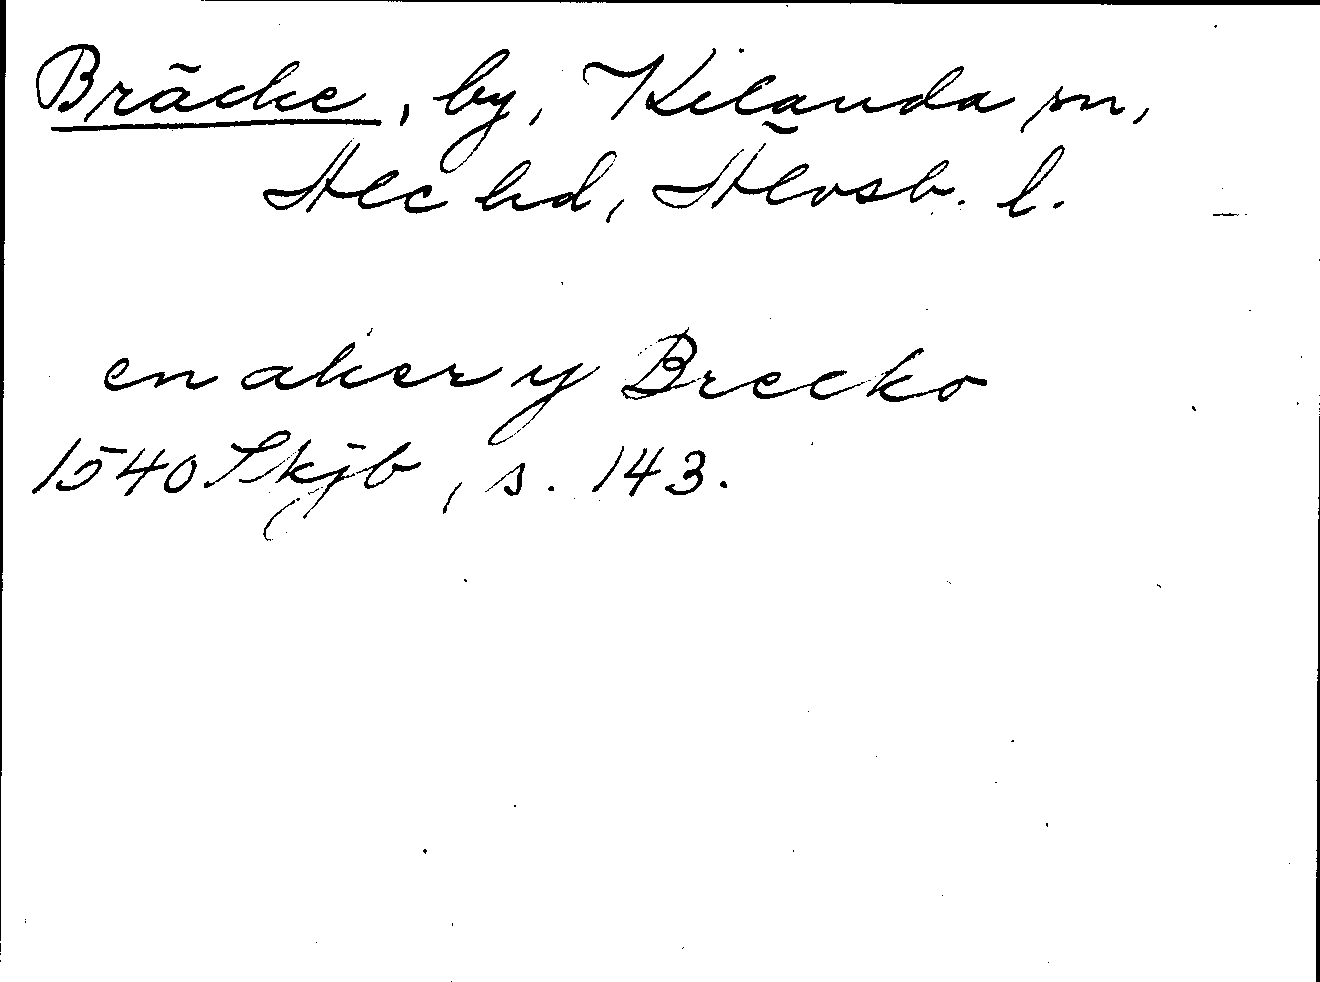 Bräcke, by, Kilanda sn,
Ale hd, Älvsb. l.
en aker y Brecko
1540 Skjb, s. 143.